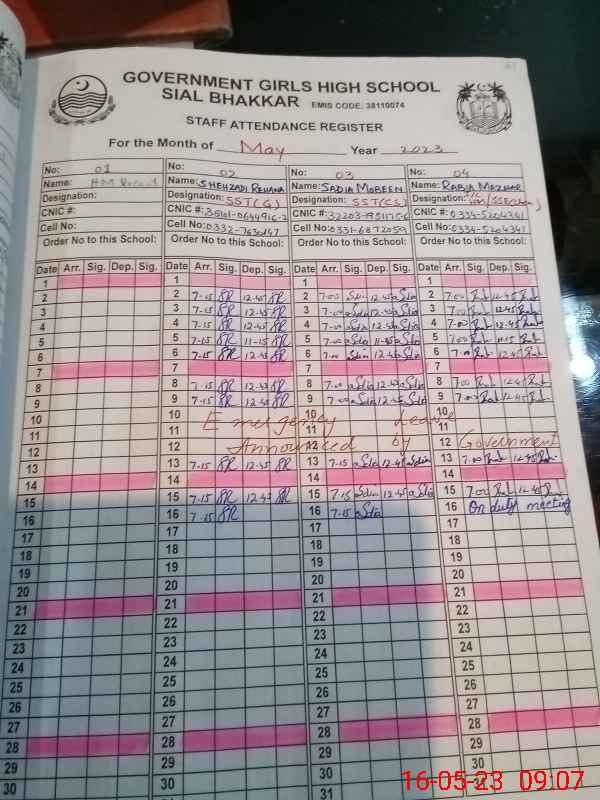 GOVERNMENT GIRLS HIGH SCHOOL
SIAL BHAKKAR EMIS CODE: 38110074
STAFF ATTENDANCE REGISTER
For the Month of May Year 2023
No: 01 No: 02 No: 03 No: 04
Name: HM Name: SHEHZADI REHANA Name: SADIA MOBEEN Name: RABIA MAZHAR
Designation: Designation: SST(G) Designation: SST(CS) Designation:
CNIC #: CNIC #: 38101-0644916-2 CNIC #: CNIC #: 0334-5204341
Cell No: Cell No: 0332-7630147 Cell No: 0331-6872059 Cell No: 0334-5204341
Order No to this School: Order No to this School: Order No to this School: Order No to this School:
Date Arr. Sig. Dep. Sig. Date Arr. Sig. Dep. Sig. Date Arr. Sig. Dep. Sig. Date Arr. Sig. Dep. Sig.
1 1 1 1
2 2 7-15 SR 12-45 SR 2 7-00 Sdia 12-45 Sdia 2 7-00 Rab 12-45 Rab
3 3 7-15 SR 12-45 SR 3 7-00 Sdia 12-45 Sdia 3 7-00 Rab 12-45 Rab
4 4 7-15 SR 12-45 SR 4 7-00 Sdia 12-45 Sdia 4 7-00 Rab 12-45 Rab
5 5 7-15 SR 11-15 SR 5 7-00 Sdia 11-45 Sdia 5 7-00 Rab 11-15 Rab
6 6 7-15 SR 12-45 SR 6 7-00 Sdia 12-45 Sdia 6 7-00 Rab 12-45 Rab
7 7 7 7
8 8 7-15 SR 12-45 SR 8 7-00 Sdia 12-45 Sdia 8 7-00 Rab 12-45 Rab
9 9 7-15 SR 12-45 SR 9 7-00 Sdia 12-45 Sdia 9 7-00 Rab 12-45 Rab
10 10 Emergency 10 Leave 10
11 11 11 11
12 12 Announced 12 by 12 Government
13 13 7-15 SR 12-45 SR 13 7-15 Sdia 12-45 Sdia 13 7-00 Rab 12-45 Rab
14 14 14 14
15 15 7-15 SR 12-45 SR 15 7-15 Sdia 12-45 Sdia 15 7-00 Rab 12-45 Rab
16 16 7-15 SR 16 7-15 Sdia 16 On duty meeting
17 17 17 17
18 18 18 18
19 19 19 19
20 20 20 20
21 21 21 21
22 22 22 22
23 23 23 23
24 24 24 24
25 25 25 25
26 26 26 26
27 27 27 27
28 28 28 28
29 29 29 29
30 30 30
31
16-05-23 09:07